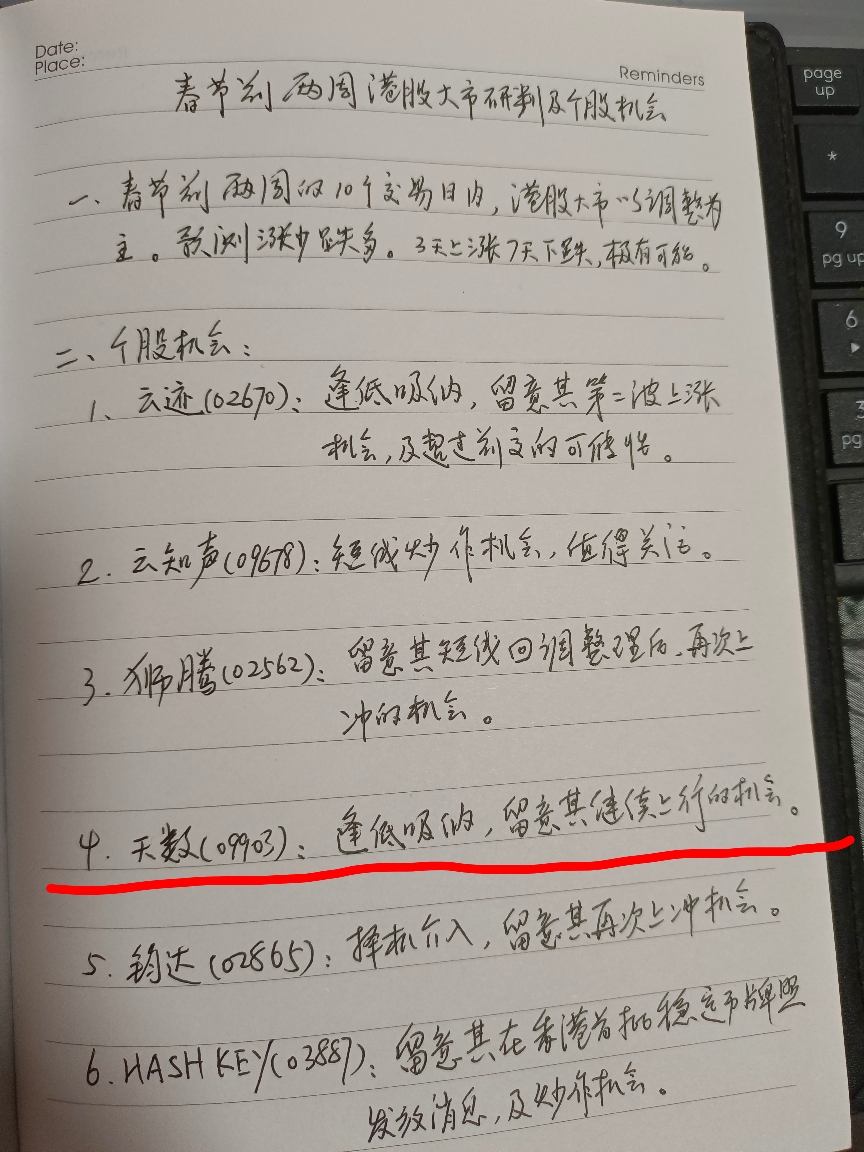 Date:
Place:
Reminders
春节前两周港股大市研判及个股机会
一、春节前两周的10个交易日内，港股大市以调整为
主。预测涨少跌多。3天上涨7天下跌，极有可能。
二、个股机会：
1、云迹(02670)：逢低吸纳，留意其第二波上涨
机会，及超过前高的可能性。
2．云知声(09678)：短线炒作机会，值得关注。
3．狮腾(02562)：留意其短线回调整理后，再次上
冲的机会。
4．天数(09903)：逢低吸纳，留意其继续上行的机会。
5．钧达(02865)：择机介入，留意其再次上冲机会。
6．HASHKEY(03887)：留意其在香港首批稳定币牌照
发放消息，及炒作机会。
page
up
*
9
pg up
6
3
pg